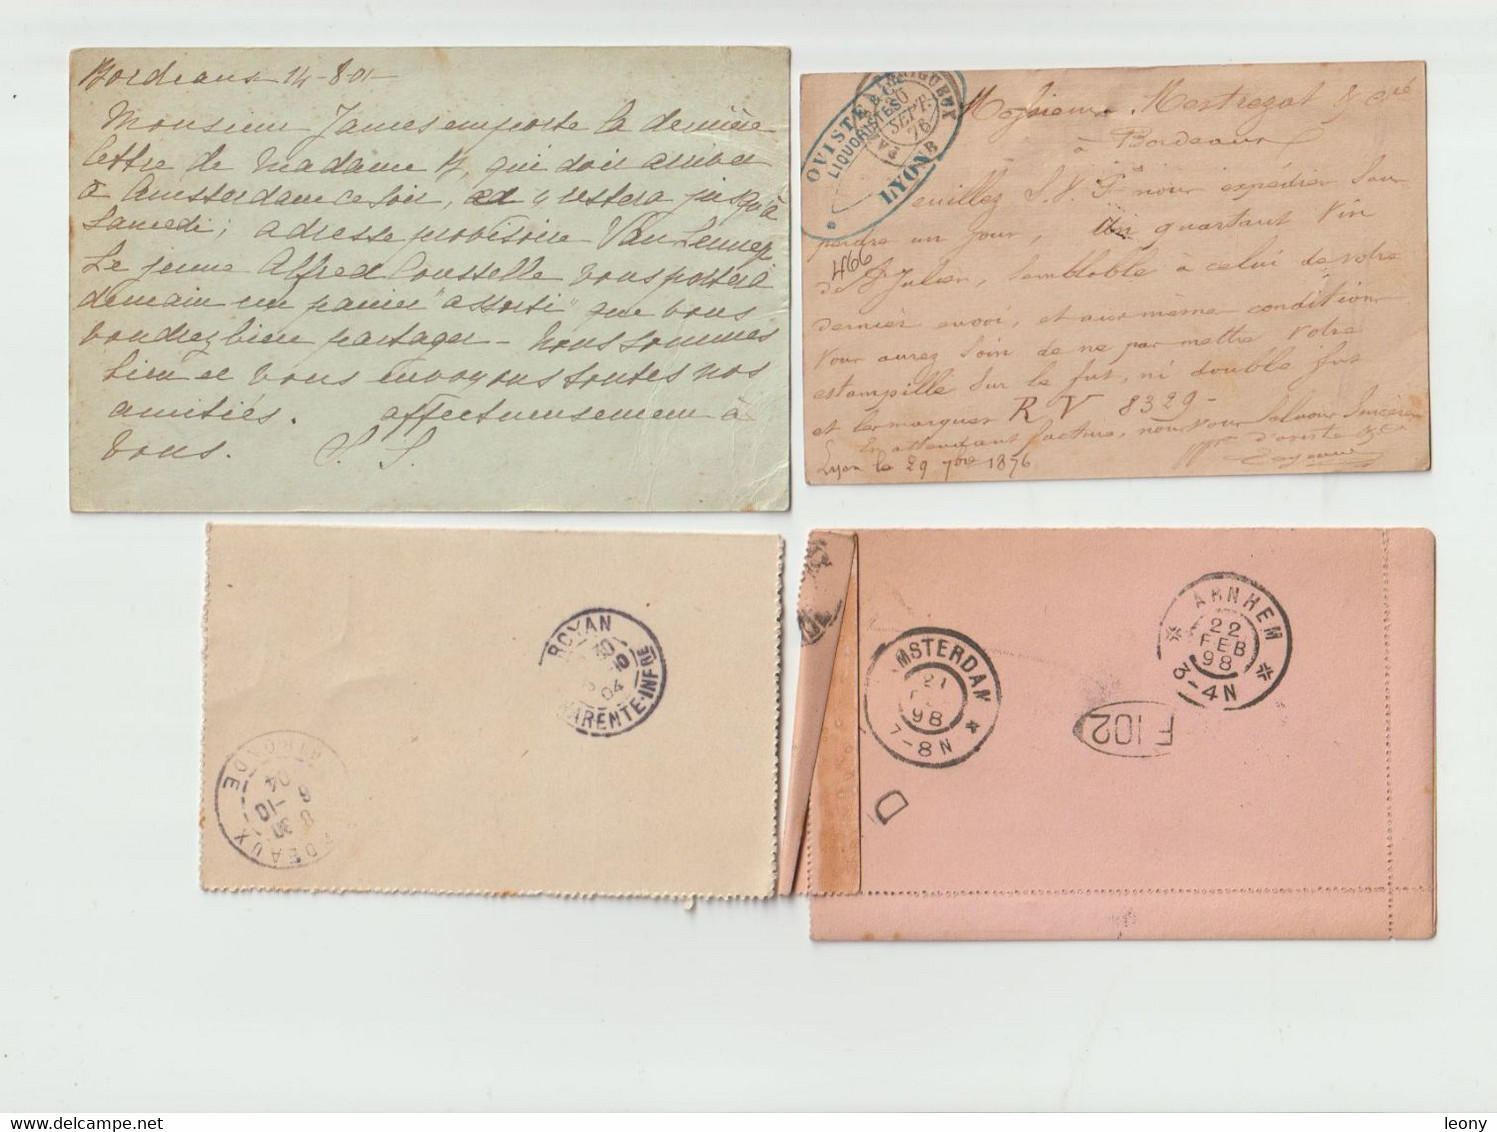 Bordeaux 14-8-01-
Monsieur James emporte la dernière
lettre de Madame H, qui doit arriver
à Amsterdam ce soir, et y restera jusqu'à
Samedi; adresse provisoire Van Lennep
Le jeune Alfred Cousselle vous portera
demain un panier "assorti" que vous
voudrez bien partager - Nous sommes
bien et vous envoyons toutes nos
amitiés. affectueusement à
vous. S. S.
OVISTE & Cie
LIQUORISTES
LYON
SEPT.
76
Messieurs Mestrezat & Cie
à Bordeaux
Veuillez S.V.P. nous expédier sans
perdre un jour, un quartaut Vin
466
de St Julien, semblable à celui de votre
dernier envoi, et aux même conditions
Vous aurez soin de ne pas mettre votre
estampille sur le fut, ni double fut
et les marquer R V 8329-
En attendant facture, nous vous saluons
Lyon le 29 7bre 1876
ROYAN
30
10
04
CHARENTE-INFRE
BORDEAUX
GIRONDE
30 -10
04
AMSTERDAM
21
98
7-8N
ARNHEM
22
FEB
98
3-4N
F 102
D
delcampe.net
leony